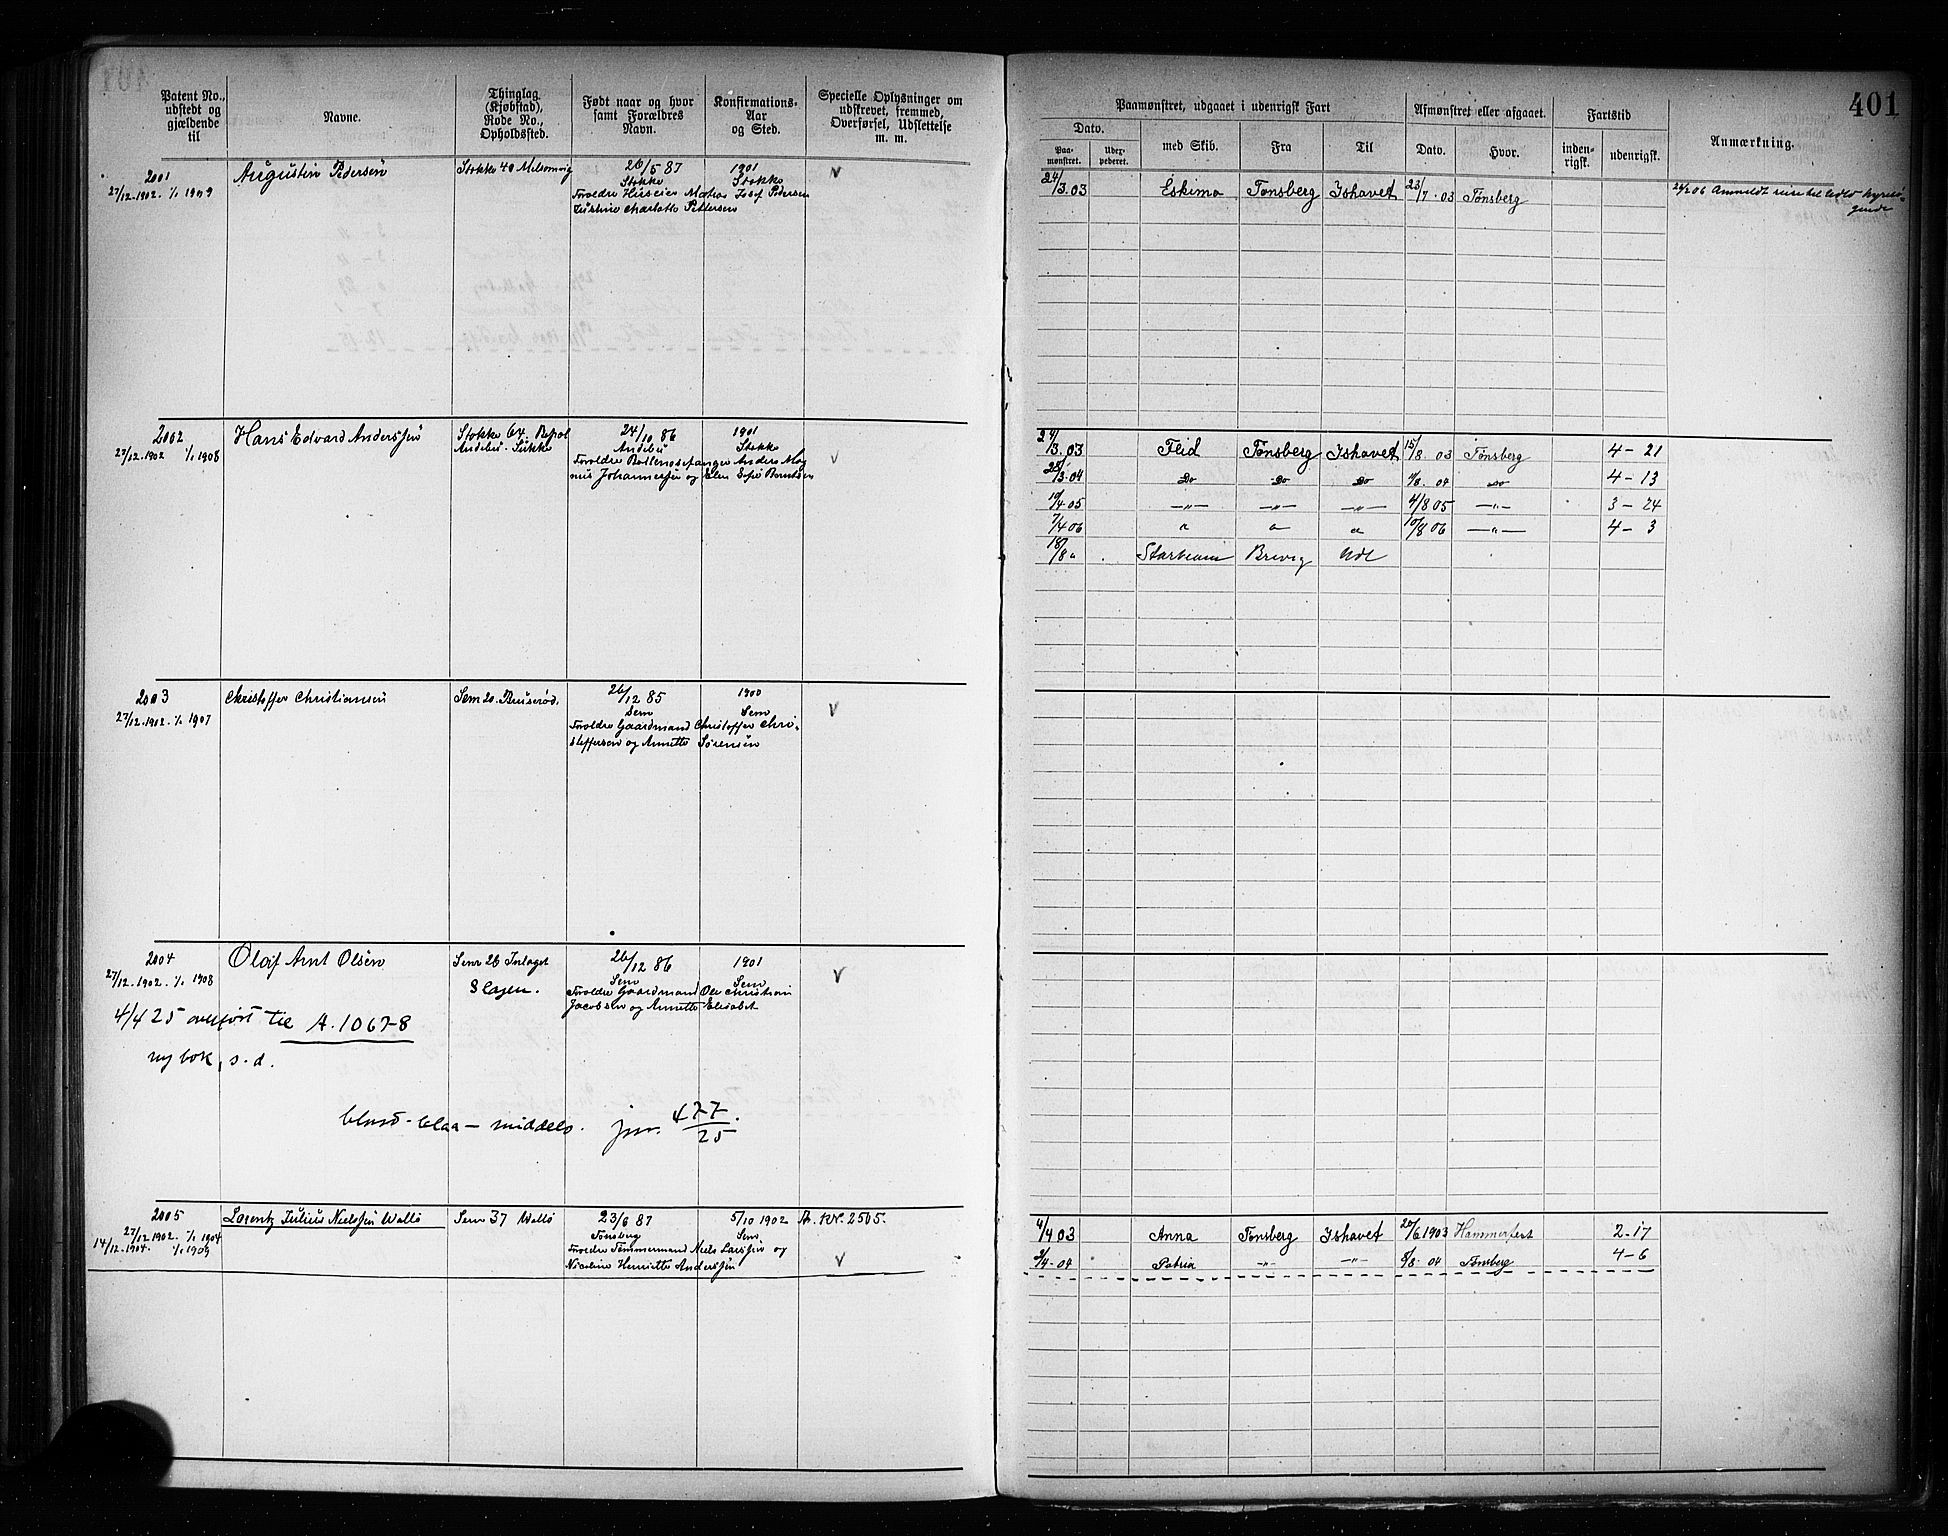 401
Patent No., udstedt og gjældende til
Navne.
Thinglag (Kjøbstad), Rode No., Opholdssted.
Født naar og hvor samt Forældres Navn.
Konfirmations-Aar og Sted.
Specielle Oplysninger om udskrevet, fremmed, Overførsel, Udslettelse m. m.
Paamønstret, udgaaet i udenrigsk Fart
Afmønstret eller afgaaet.
Fartstid
Anmærkning.
Dato.
Paa-mønstret.
Udex-pederet.
med Skib.
Fra
Til
Dato.
Hvor.
inden-rigsk.
udenrigsk.
2001
27/12.1902. 1/1 1909
Augustin Pedersen
Stokke 40 Melsomvig
26/5 87
Stokke
Foreldre Huseier Matias Josef Pedersen
Justine Charlotte Pettersen
1901
Stokke
V
24/3.03 Eskimo Tønsberg Ishavet 23/7.03 Tønsberg
Anmeldt reise til Udld hyresø-
gende
2002
27/12.1902 1/1 1908
Hans Edvard Anderssen
Stokke 64.
Andebu.
24/10 86
Andebu
1901
Stokke
Foreldre Anders Mag
nus Johannessen og Elen Sofie Berntsen
V
24/3.03 Flid Tønsberg Ishavet 15/8 03 Tønsberg 4-21
28/3.04 Do Do Do 11/8.04 Do 4-13
10/4.05 —"— —"— —"— 4/8 05 —"— 3-24
7/4 06 " " " 10/8 06 —"— 4-3
18/8 " Starbeam Brevig Udl
2003
27/12.1902. 1/1 1907
Christoffer Christiansen
Sem 20. Bruserød.
26/12 85
Sem
1900
Sem
Foreldre Gaardmand Christoffer Chri-
stoffersen og Annette Sørensen
V
2004
27/12.1902. 1/1 1908
Olaf Arnt Olsen
Sem 26 Intaget
Slagen.
26/12 86
Sem
1901
Sem
Foreldre Gaardmand Ole Christian
Jacobsen og Annette Elisabet
V
4/4 25 overført til A. 1067-8
ny bok, s.d.
blond - blaa - middels. jnr. 477/25.
2005
27/12.1902. 1/1 1904
14/12.1904. 1/1 1909
Lorentz Julius Nielssen Wallø
Sem 37 Wallø
23/6 87
Tønsberg
5/10 1902
Sem
A. Nr. 2505.
Foreldre Tømmermand Niels Larssen og
Nicoline Henriette Anderssen
V
4/4 03 Anna Tønsberg Ishavet 20/6 1903 Hammerfest 2-17
2/4-04 Patria —"— —"— 8/8.04 Tønsberg 4-6